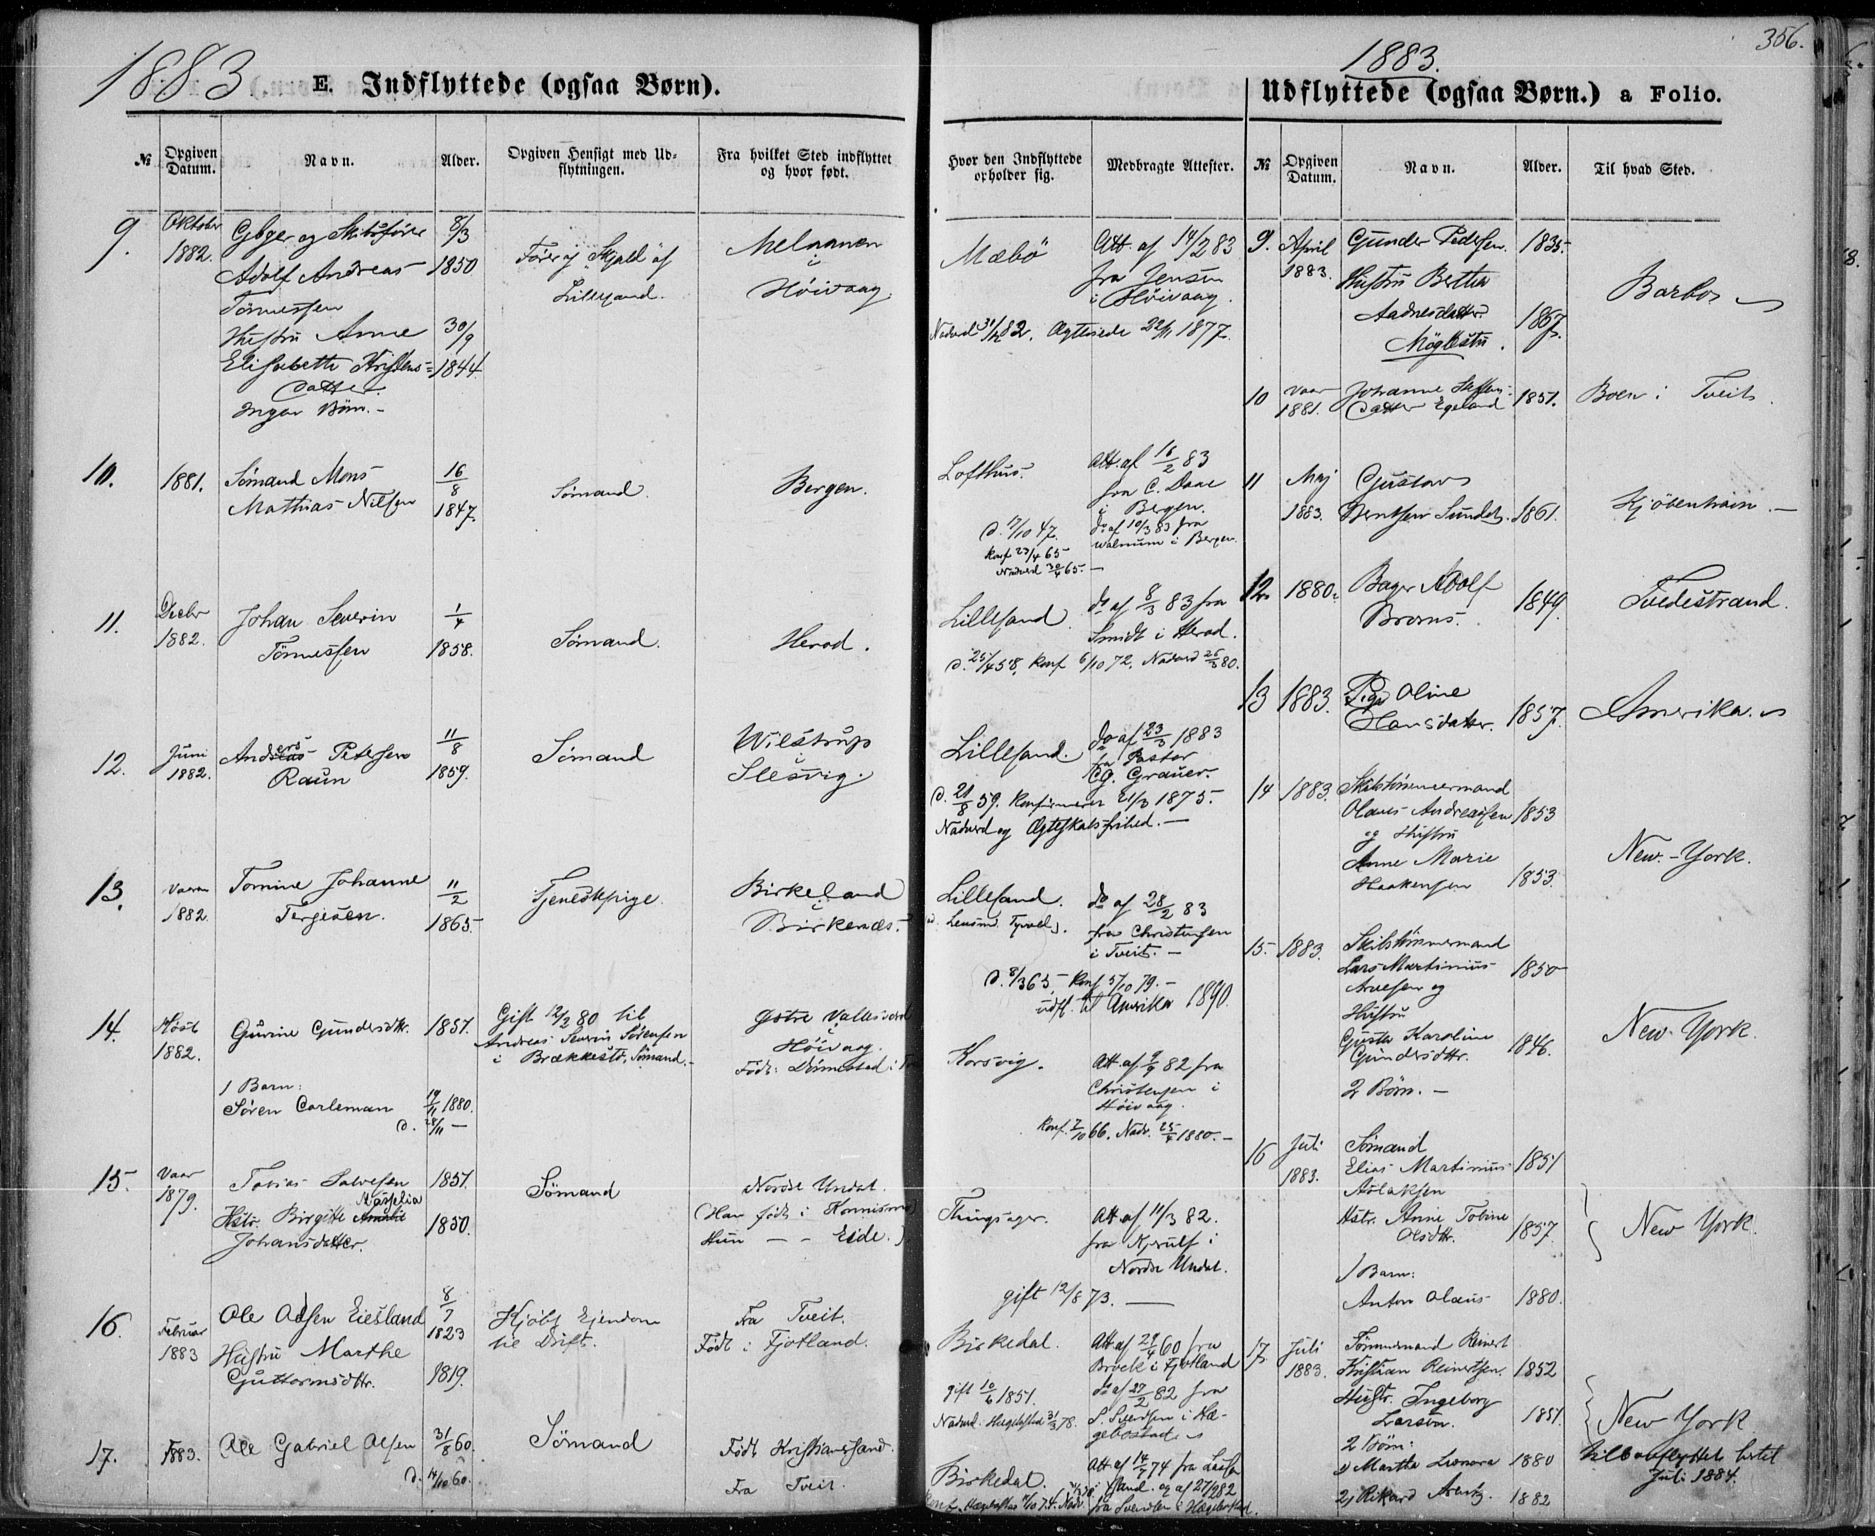 1883
E. Indflyttede (ogsaa Børn).
№
Opgiven Datum.
Navn.
Alder.
Opgiven Hensigt med Udflytningen.
Fra hvilket Sted indflyttet og hvor født.
Hvor den Indflyttede opholder sig.
Medbragte Attester.
9. Oktober 1882.
og Skibsfører
Adolf Andreas
Tønnessen
8/3 1850
Hustru Anne
Elisabeth
datter.
30/9 1844
Ingen Børn.
Fører af Skjold af
Lillesand.
i
Høivaag
Mæbø
Att. af 14/2 83
fra Jensen
i Høivaag.
Ægteviede 22/11 1877.
10. 1881.
Sømand Mons
Mathias Nilsen
16/8 1847.
Sømand.
Bergen.
Lofthus.
Att. af 16/2 83
fra C. Daae
i Bergen.
do af 10/3 83 fra
Walnum i Bergen.
D. 17/10 47.
Konf 23/4 65
Nadverd 30/4 65. —
11. Decbr 1882.
Johan Severin
Tønnessen
1/4 1858.
Sømand.
Herod.
Lillesand.
do af 8/3 83 fra
Smidt i Herod.
D. 25/4 58. Konf 6/10 72, Nadverd 25/3 80.
12. Juni 1882.
Anders Petersen
Raun
11/8 1859.
Sømand
Wilstrup
i
Slesvig.
Lillesand.
do af 23/3 1883
fra Pastor
C. G. Grauer.
D. 21/8 59. Konfirmeret 21/3 1875.
Nadverd og Ægteskabsfrihed. —
13. Vaaren 1882.
Tomine Johanne
Tergesen.
11/2 1865
Tjenestepige.
Birkeland
i
Birkenæs.
Lillesand.
do af 28/2 83
fra Christensen
i Tveit. —
D. 8/3 65, Konf 5/10 79. —
udfl. til Amerika 1890.
14. Høst 1882.
Gurine Gundersdtr.
1851.
Gift 12/2 80 til
Andreas Severin Sørensen
i Brækkestø, Sømand. —
Østre Vallesverd
Høivaag.
Født:
1 Barn:
Søren Carleman
19/11 1880.
D. 28/11 —
Korsvig.
Att. af 9/9 82 fra
Christensen i
Høivaag.
Konf. 7/10 66. Nadv. 25/4 1880. —
15. Vaar 1879.
Tobias Salvesen
1851.
Hstr. Birgitte Amalie
Johansdatter.
1850.
Sømand
Nordre Undal.
(Han født i
Hun — — Eide.)
Thingsager.
Att. af 11/3 82.
fra Kjerulf i
Nordre Undal.
gift 12/8 73. —
16. Februar 1883
Ole Olsen Eiesland
8/7 1823
Hustru Marthe
Guttormsdtr.
1819.
Kjøbt Ejendom
til Drift.
Fra Tveit.
Født i Fjotland.
Birkedal.
Att. af 29/4 60 fra
Brock i Fjotland
do af 27/2 82 fra
S. Svendsen i Hægebostad
gift 10/6 1851.
Nadverd. Hægebostad 31/3 78.
17. 1883.
Ole Gabriel Olsen
31/8 60.
D. 14/10 60.
Sømand
Født Kristianssand.
Fra Tveit.
Birkedal.
Att. af 14/7 74 fra
og af 27/2 82
fra Svendsen i Hægebostad.
356.
1883.
Udflyttede (ogsaa Børn.) a Folio.
№
Opgiven Datum.
Navn.
Alder.
Til hvad Sted.
9. April 1883.
Gunder Pedersen
1835.
Hustru Berthe
Aadnesdatter
Møglestu.
1867.
Barbo
10 Vaar 1881.
Johanne
datter Egeland
1851.
Boen i Tveit.
11 Maj 1883.
Gustav
Berntsen Sundet.
1861.
Kjøbenhavn. —
12. 1880.
Bager Adolf
Broms.
1849.
Tvedestrand.
13 1883.
Pige Oline
Hansdatter.
1857.
Amerika.
14 1883.
Skibstømmermand
Olaus Andreassen
1853
og Hustru
Anne Marie
Haakensen
1853.
New-York.
15. 1883.
Skibstømmermand
Lars Martinius
Arvesen og
1850
Hustru
Karoline
Gundersdtr.
1846.
2 Børn. —
New-York.
16 Juli 1883.
Sømand
Elias Martinius
Aslaksen
1851
Hstr. Anne Tobine
Olsdtr.
1857.
1 Barn:
Anton Olaus
1880.
New York.
17. Juli 1883.
Tømmermand Reinert
Kristian Reinertsen.
1852
Hustr. Ingeborg
Larsen.
1851.
2 Børn:
1) Martha Leonora
1880
2) Rikard
1882
New York
tilbageflyttet hertil
Juli 1884.